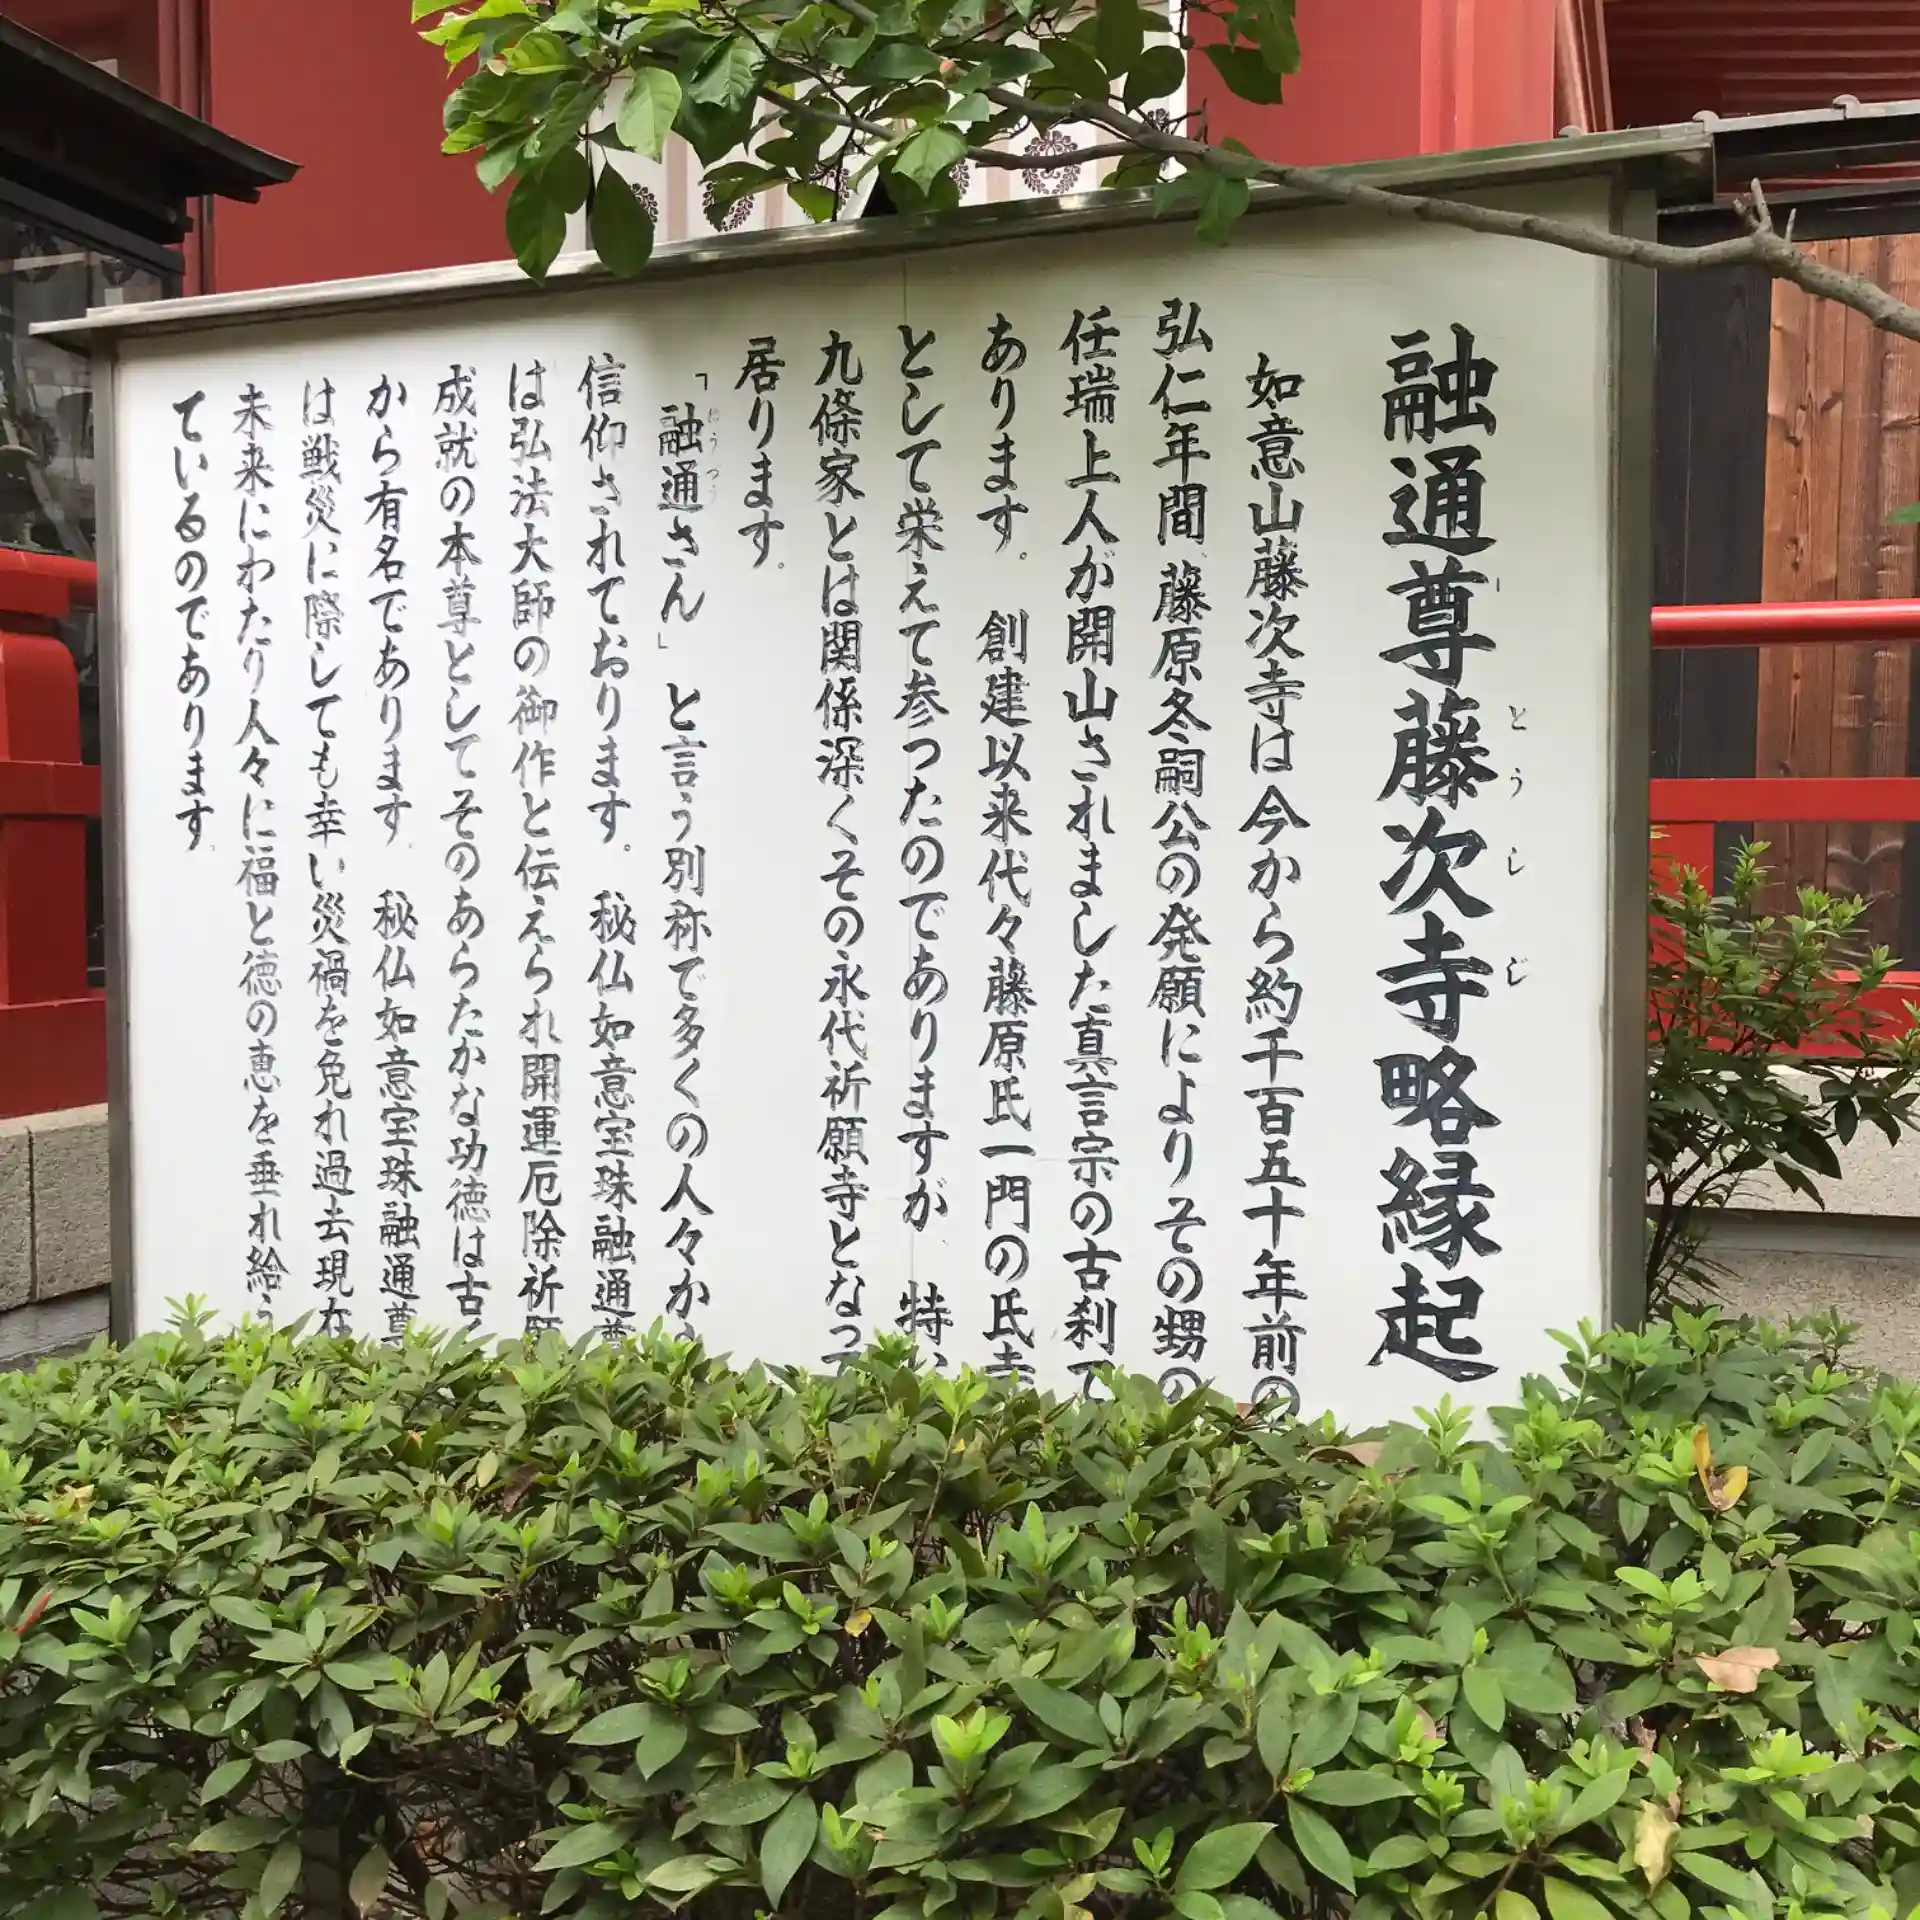 融通尊藤次寺略縁起
とうしじ
如意山藤次寺は今から約千百五十年前の
弘仁年間、藤原冬嗣公の発願によりその甥の
任瑞上人が開山されました真言宗の古刹で
あります。 創建以来代々藤原氏一門の氏寺
として栄えて参つたのでありますが、特に
九條家とは関係深くその永代祈願寺となって
居ります。
「融通さん」と言う別称で多くの人々から
ゆうづう
信仰されております。 秘仏如意宝珠融通尊
は弘法大師の御作と伝えられ開運厄除祈願
成就の本尊としてそのあらたかな功徳は古く
から有名であります。 秘仏如意宝珠融通尊
は戦災に際しても幸い災禍を免れ過去現在
未来にわたり人々に福と徳の恵を垂れ給う
ているのであります。